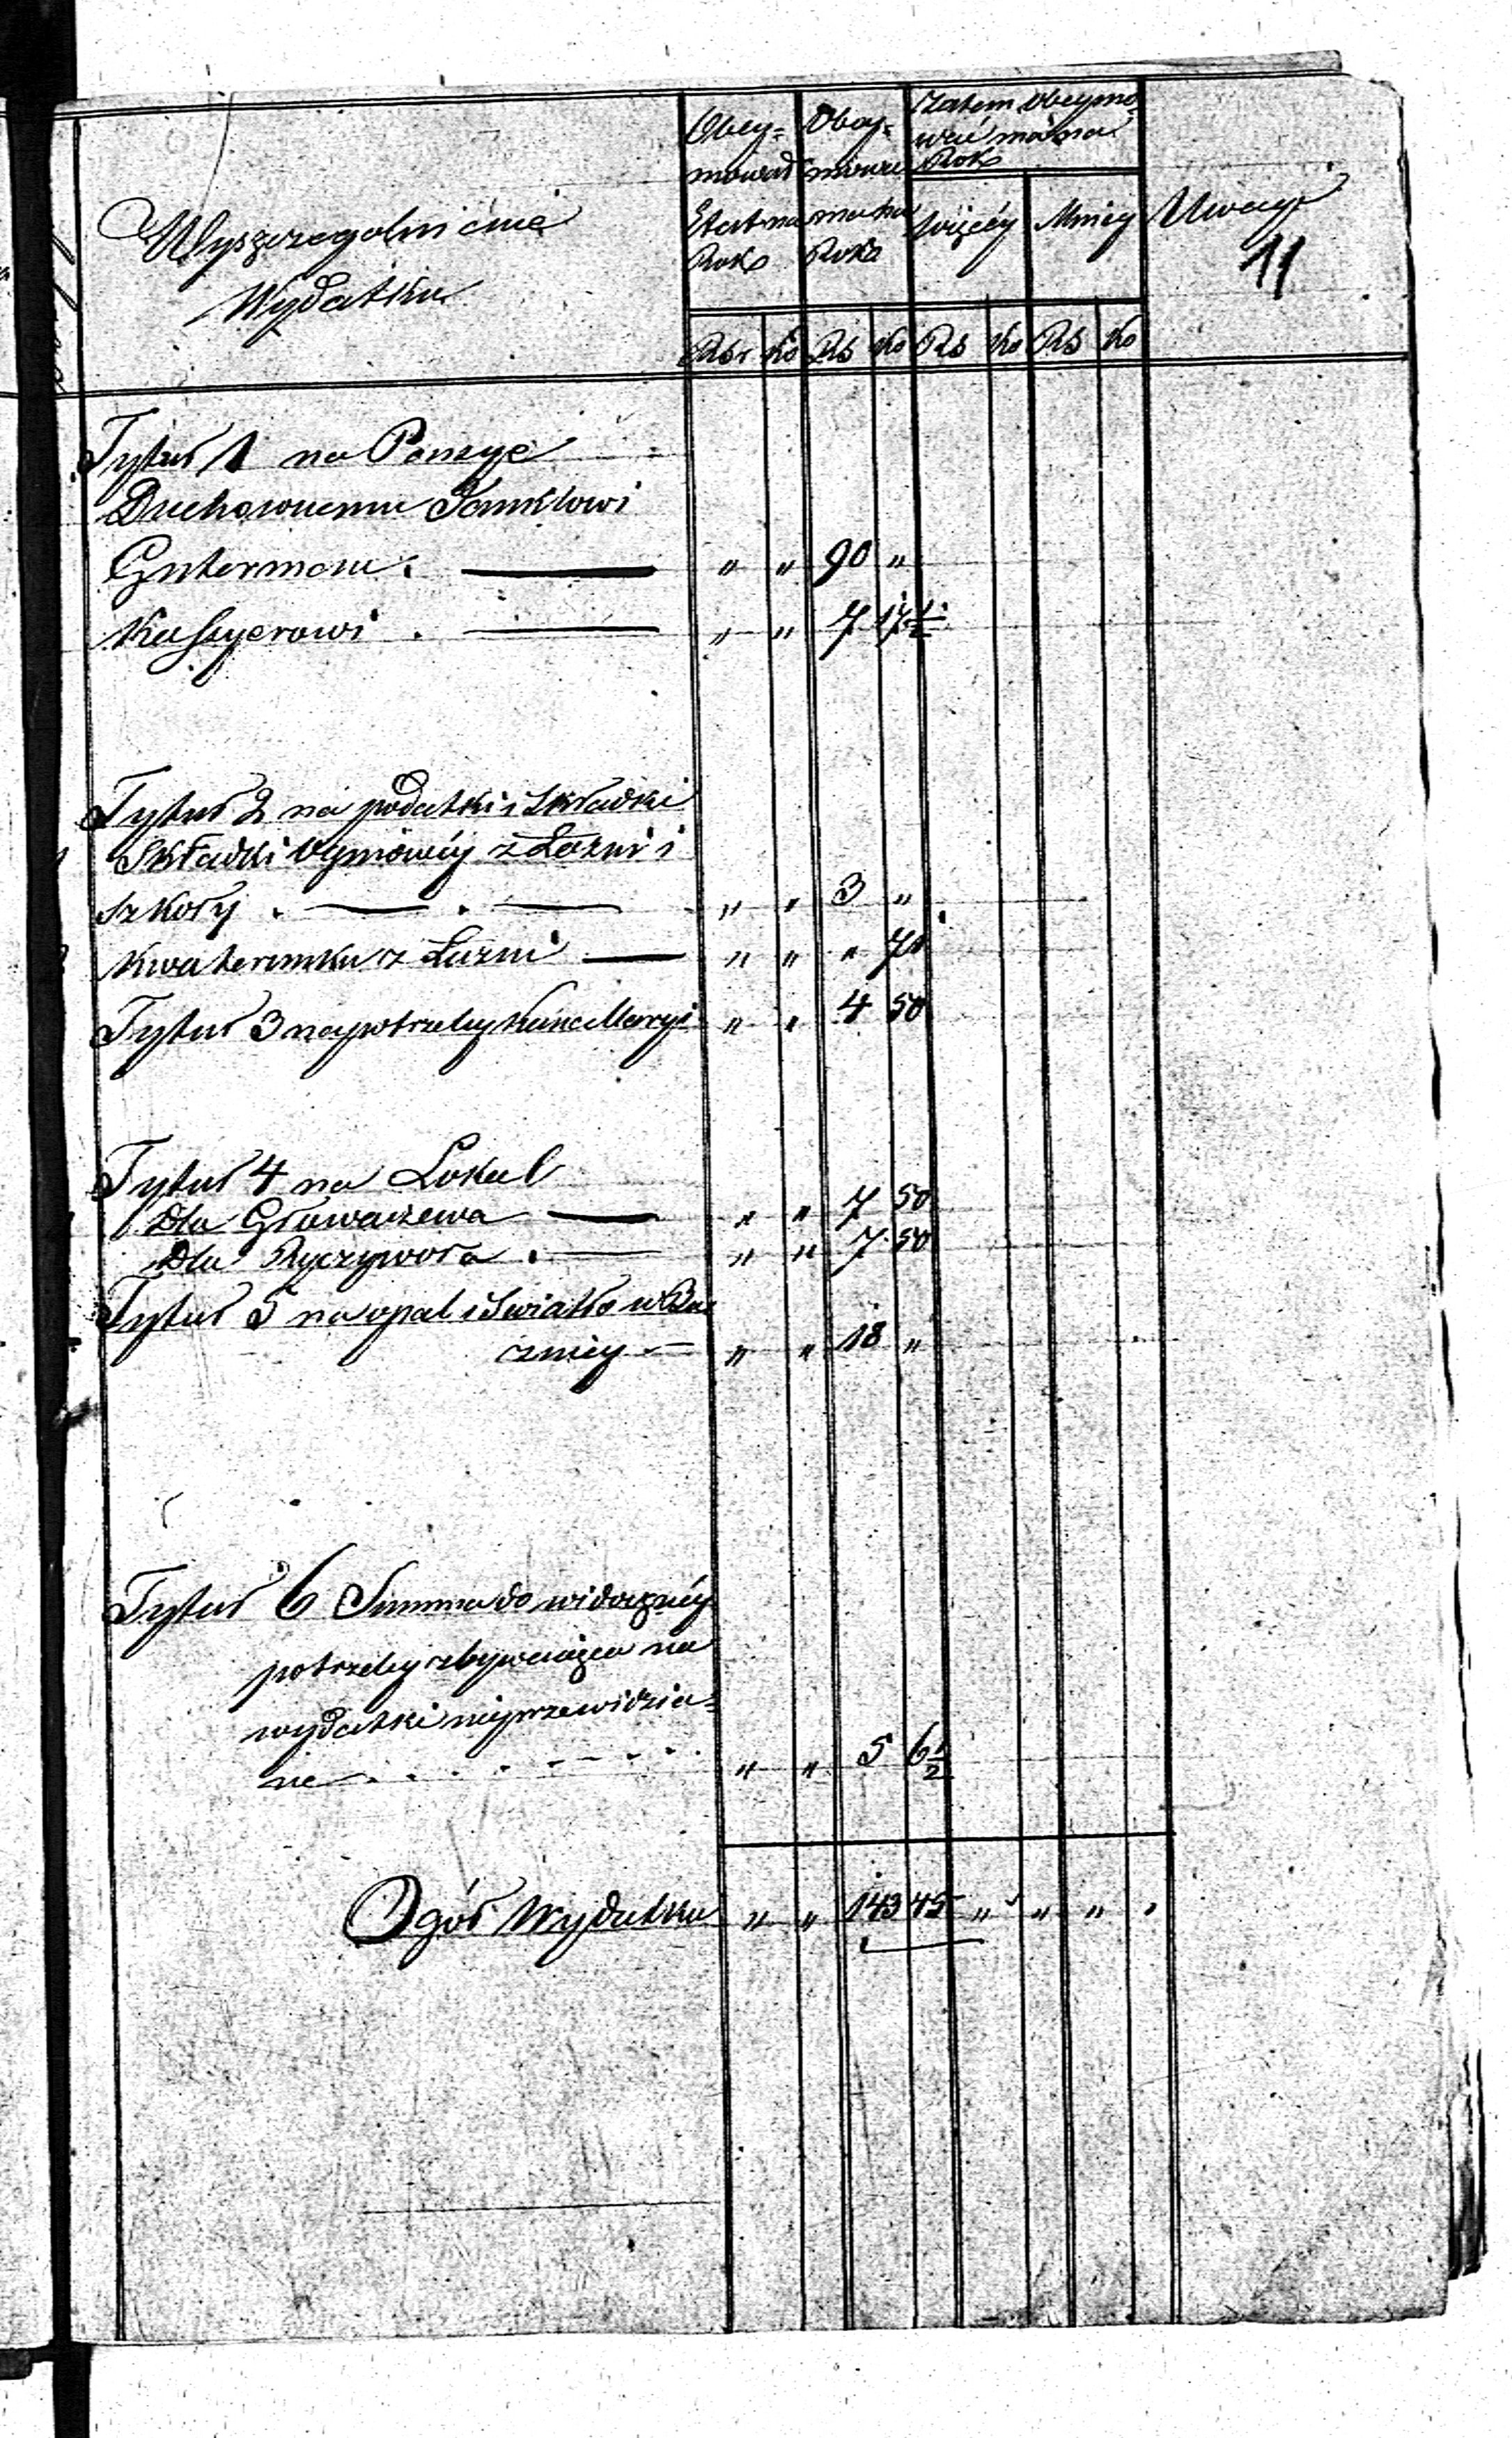 Wyszczegolnienie
Wydatku
Obey=
mował
Etat na
Rok
Obey=
mować
ma na
Rok
Zatem Obeymo=
wać ma na
Rok
Więcéy
Mniey
Uwagi
11
Rbr Ko Rs Ko Rs Ko Rs Ko
Tytuł 1 na Pensye
Duchownemu Janklowi
Guterman. " " 90 "
Kassyerowi . " " 7 17 1/2
Tytuł 2 na podatki i Składki
Składki Ogniowéy z Łazni i
Szkoły . . " " 3 "
Kwaterunku z Łazni " " " 71
Tytuł 3 na potrzeby Kancellaryi " " 4 50
Tytuł 4 na Lokal
Dla Głowaczewa " " 7 50
Dla Ryczywoła . " " 7 50
Tytuł 5 na opał i Swiatło w Bu
zniey " " 18 "
Tytuł 6 Summa do widoczney
potrzeby zbywaiąca na
wydatki nieprzewidzia=
ne " " 5 6 1/2
Ogół Wydatku " " 143 45 " " " "